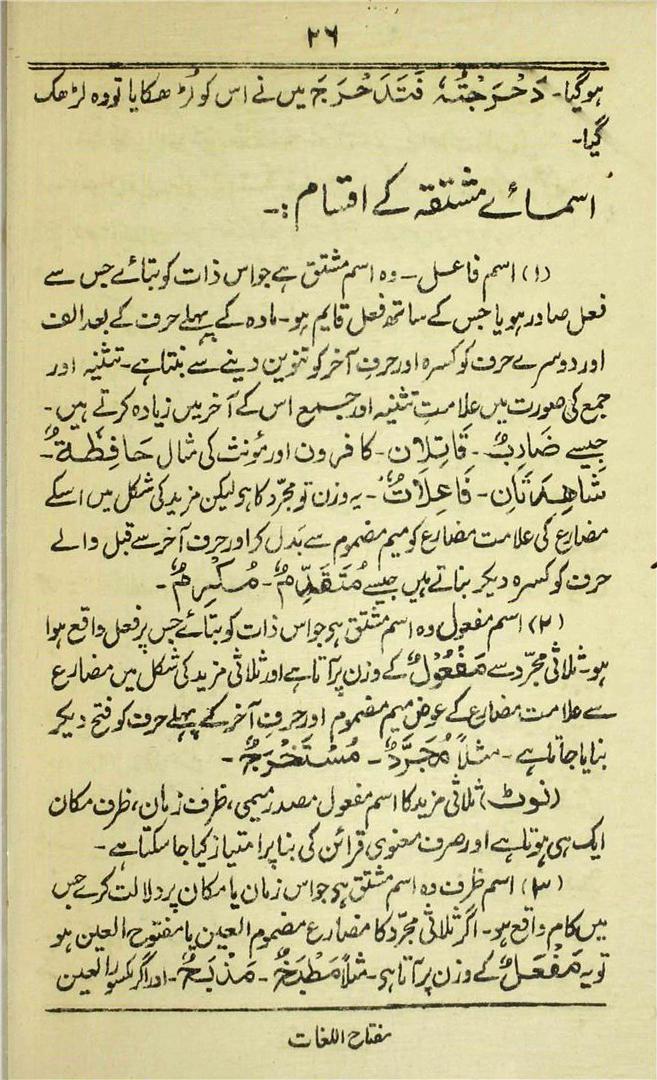 ۲۶
ہوگیا۔ دَحْرَجْتُہٗ فَتَدَحْرَجَ میں نے اس کو لُڑھکایا تو وہ لڑھک
گیا۔
اسمائے مشتقہ کے اقسام :۔
(۱) اسم فاعل ۔ وہ اسم مشتق ہے جو اس ذات کو بتائے جس سے
فعل صادر ہو یا جس کے ساتھ فعل قایم ہو۔ مادہ کے پہلے حرف کے بعد الف
اور دوسرے حرف کو کسرہ اور حرفِ آخر کو تنوین دینے سے بنتا ہے۔ تثنیہ اور
جمع کی صورت میں علامتِ تثنیہ اور جمع اس کے آخر میں زیادہ کرتے ہیں۔
جیسے ضَارِبٌ۔ قَاتِلَانِ۔ کافرون اور مؤنث کی مثال حَافِظَۃٌ۔
شَاھِدَتَانِ۔ فَاعِلَاتٌ۔ یہ وزن تو مجّرد کا ہو لیکن مزید کی شکل میں اسکے
مضارع کی علامت مضارع کو میم مضموم سے بَدل کر اور حرف آخر سے قبل والے
حرف کو کسرہ دیکر بناتے ہیں جیسے مُتَقَدِّمٌ۔ مُکْرِمٌ۔
(۲) اسم مفعول وہ اسم مشتق ہی جو اس ذات کو بتائے جس پر فعل واقع ہوا
ہو۔ ثلاثی مجّرد سے مَفْعُوْلٌ کے وزن پر آتا ہے اور ثلاثی مزید کی شکل میں مضارع
سے علامت مضارع کے عوض میم مضموم اور حرفِ آخر کے پہلے حرف کو فتح دیکر
بنایا جاتا ہے۔ مثلاً مُجَرَّدٌ۔ مُسْتَخْرَجٌ۔
(نوٹ) ثلاثی مزید کا اسم مفعول مصدر میمی، ظرف زمان، ظرف مکان
ایک ہی ہوتا ہے اور صرف معنوی قرائن کی بنا پر امتیاز کیا جا سکتا ہے۔
(۳) اسم ظرف وہ اسم مشتق ہی جو اس زمان یا مکان پر دلالت کرے جس
میں کام واقع ہو۔ اگر ثلاثی مجّرد کا مضارع مضموم العین یا مفتوح العین ہو
تو یہ مَفْعَلٌ کے وزن پر آتا ہی۔ مثلاً مَطْبَخٌ۔ مَذْبَحٌ۔ اور اگر مکسور العین
مفتاح اللغات